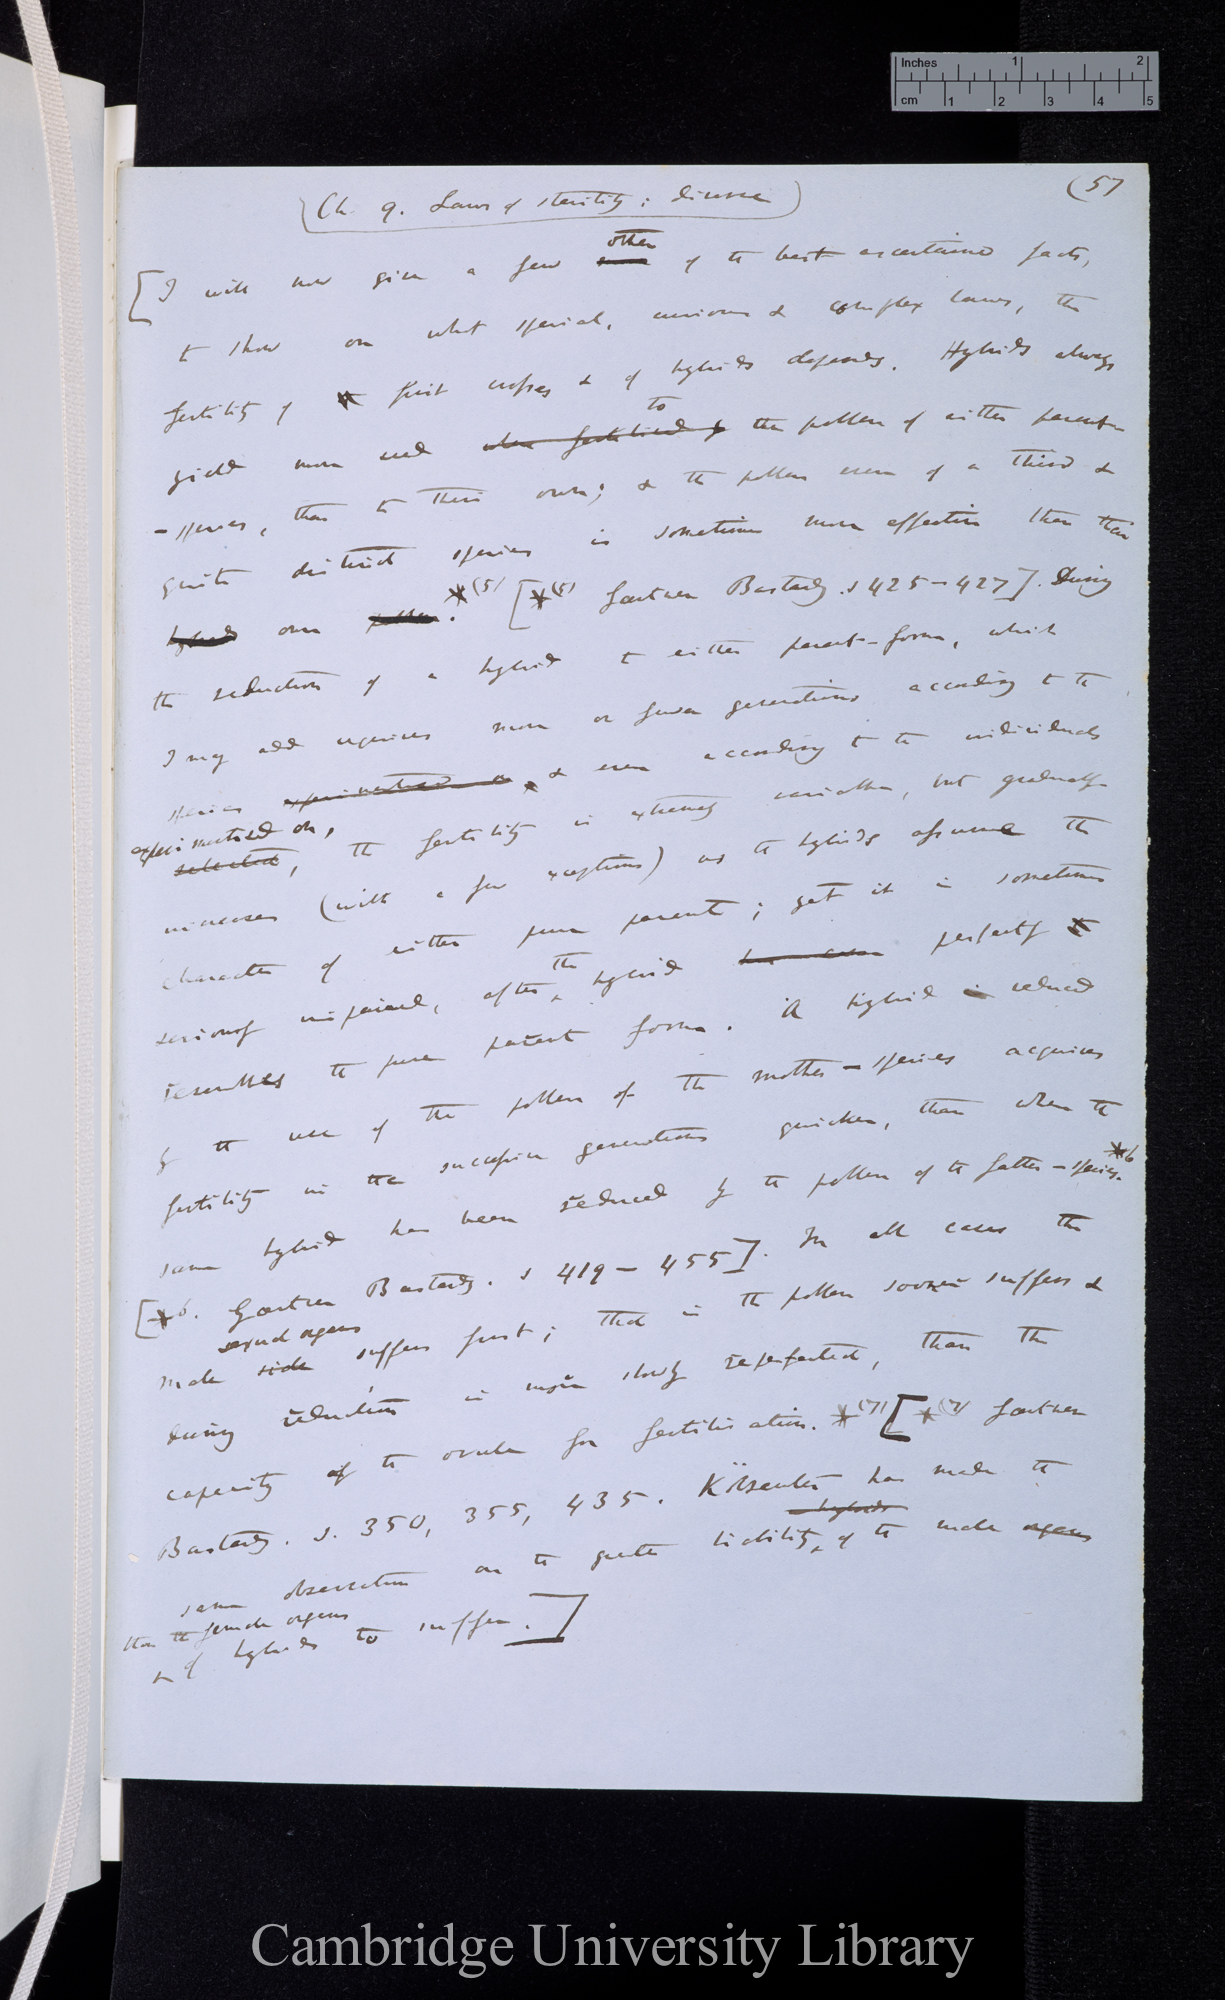 Inches 1 2
cm 1 2 3 4 5
(57
(Ch. 9. Laws of sterility; diverse)
other
[I will now give a few some of the best ascertained facts,
to show on what special, curious & complex laws, the
fertility of first crosses & of hybrids depends. Hybrids always
to
yield more seed when fertilised by the pollen of either parent
-species, than to their own; & the pollen even of a third &
quite distinct species is sometimes more effective than their
hybrids own pollen.*(5) [*(5) Gærtner Bastardz. s 425–427]. During
the reduction of a hybrid to either parent-form, which
I may add requires more or fewer generations according to the
species experimentised on & even according to the individuals
experimentised on,
selected, the fertility is extremely variable, but gradually
increases (with a few exceptions) as the hybrids assume the
character of either pure parent; yet it is sometimes
the
seriously impaired, after hybrid has even perfectly
resembles the pure parent form. A hybrid is reduced
by the use of the pollen of the mother-species acquires
fertility in the successive generations quicker, than when the
same hybrid has been reduced by the pollen of the father-species.*6
[*6. Gærtner Bastardz. s 419–455]. In all cases the
sexual organs
male side suffers first; that is the pollen sooner suffers &
during reduction is more slowly reperfected, than the
capacity of the ovule for fertilisation.*(7) [*(7) Gærtner
Bastardz. s. 350, 355, 435. Kölreuter has made the
hybrids
same observation on the greater liability, of the male organs
than the female organs
& of hybrids to suffer.]
Cambridge University Library